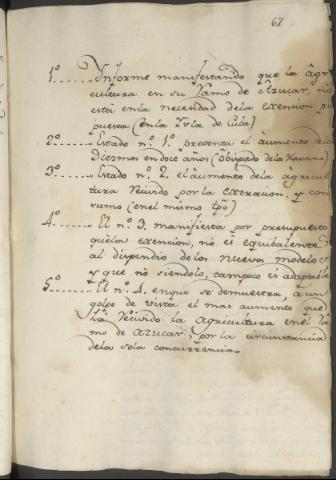 67.
1º...... Ynforme manifestando que la Agri
cultura en su Ramo de Azucar, no
está enla necesidad dela exencion pro
puesta (enla Ysla de Cuba)
2º...... Estado nº 1º presenta el aumento delos
Diezmos en doce años (Obispado dela Havana)
3º...... Estado nº 2. el aumento dela agricul
tura Recivido por la extracion, y con
sumo (enel mismo tpo)
4º...... El nº 3. manifiesta por presupuesto
quela exencion, no es equibalente
al dispendio delos nuevos modelos
y que no siendolo, tampoco es adaptable
5º...... El nº 4. enque se demuestra, a un
golpe de vista el mas aumento que
ha Recivido la agricultura enel Ra
mo de azucar, por la circunstancia
dela sola concurrencia.